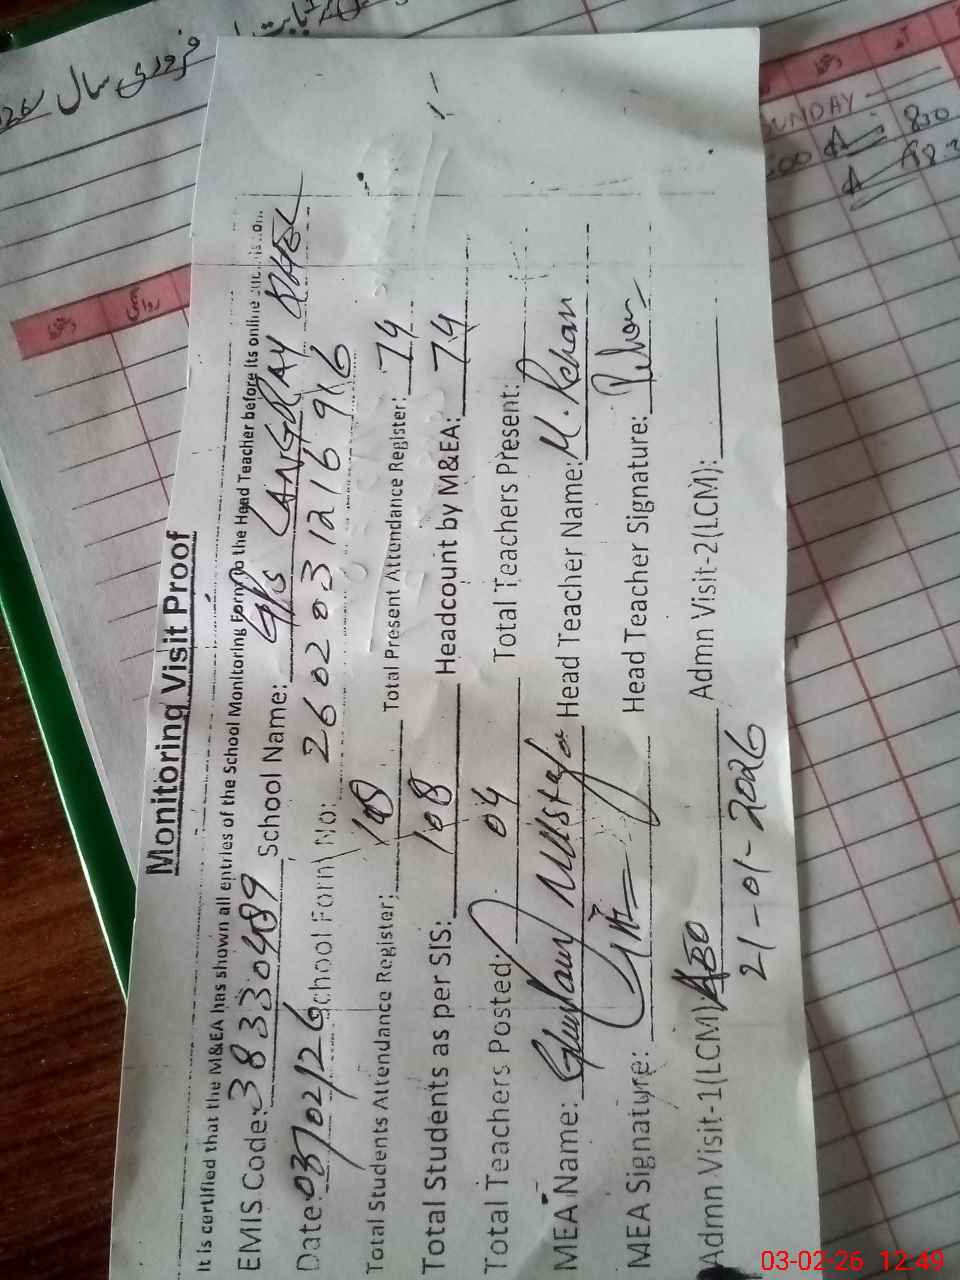 Monitoring Visit Proof
It is certified that the M&EA has shown all entries of the School Monitoring Form to the Head Teacher before its online
EMIS Code: 38330489 School Name: GPS LANGRAY KHEL
Date: 03/02/26 School Form No: 2602031216916
Total Students Attendance Register: 108 Total Present Attendance Register: 74
Total Students as per SIS: 108 Headcount by M&EA: 74
Total Teachers Posted: 04 Total Teachers Present:
MEA Name: Ghulam Mustafa Head Teacher Name: M. Rehan
MEA Signature: Head Teacher Signature: Rehan
Admn Visit-1(LCM) ABO Admn Visit-2(LCM):
21-01-2026
فروری سال
SUNDAY
830
03-02-26 12:49